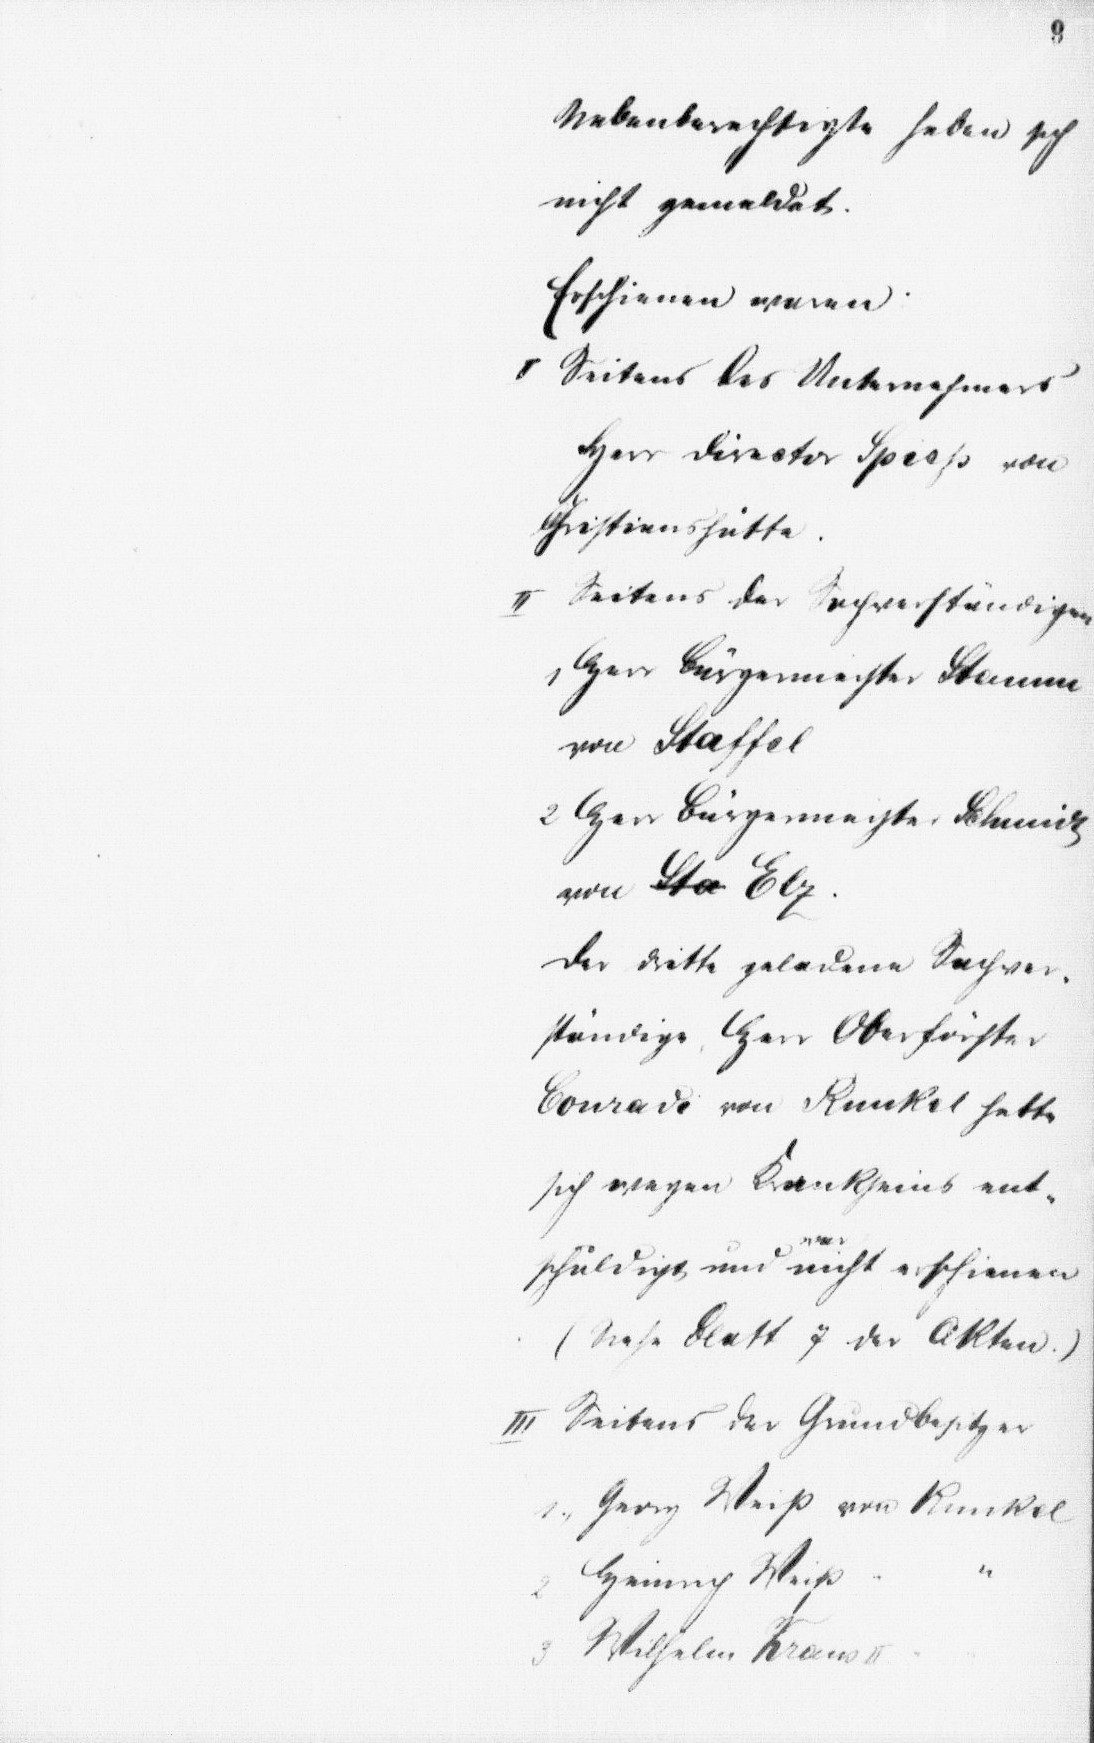 8
Nebenberechtigte haben sich
nicht gemeldet.
Erschienen waren:
I Seitens des Unternehmers
Herr Director Spieß von
Christianshütte.
II Seitens der Sachverständigen
1 Herr Bürgermeister Stamm
von Staffel
2 Herr Bürgermeister Schmidt
von Sta Elz.
Der dritte geladene Sachver-
ständige, Herr Oberförster
Conradi von Runkel hatte
sich wegen Krankseins ent-
schuldigt und war nicht erschienen
(Siehe Blatt 7 der Akten.)
III Seitens der Grundbesitzer
1., Georg Weiß von Runkel
2 Heinrich Weiß " "
3 Wilhelm Kraus II " "